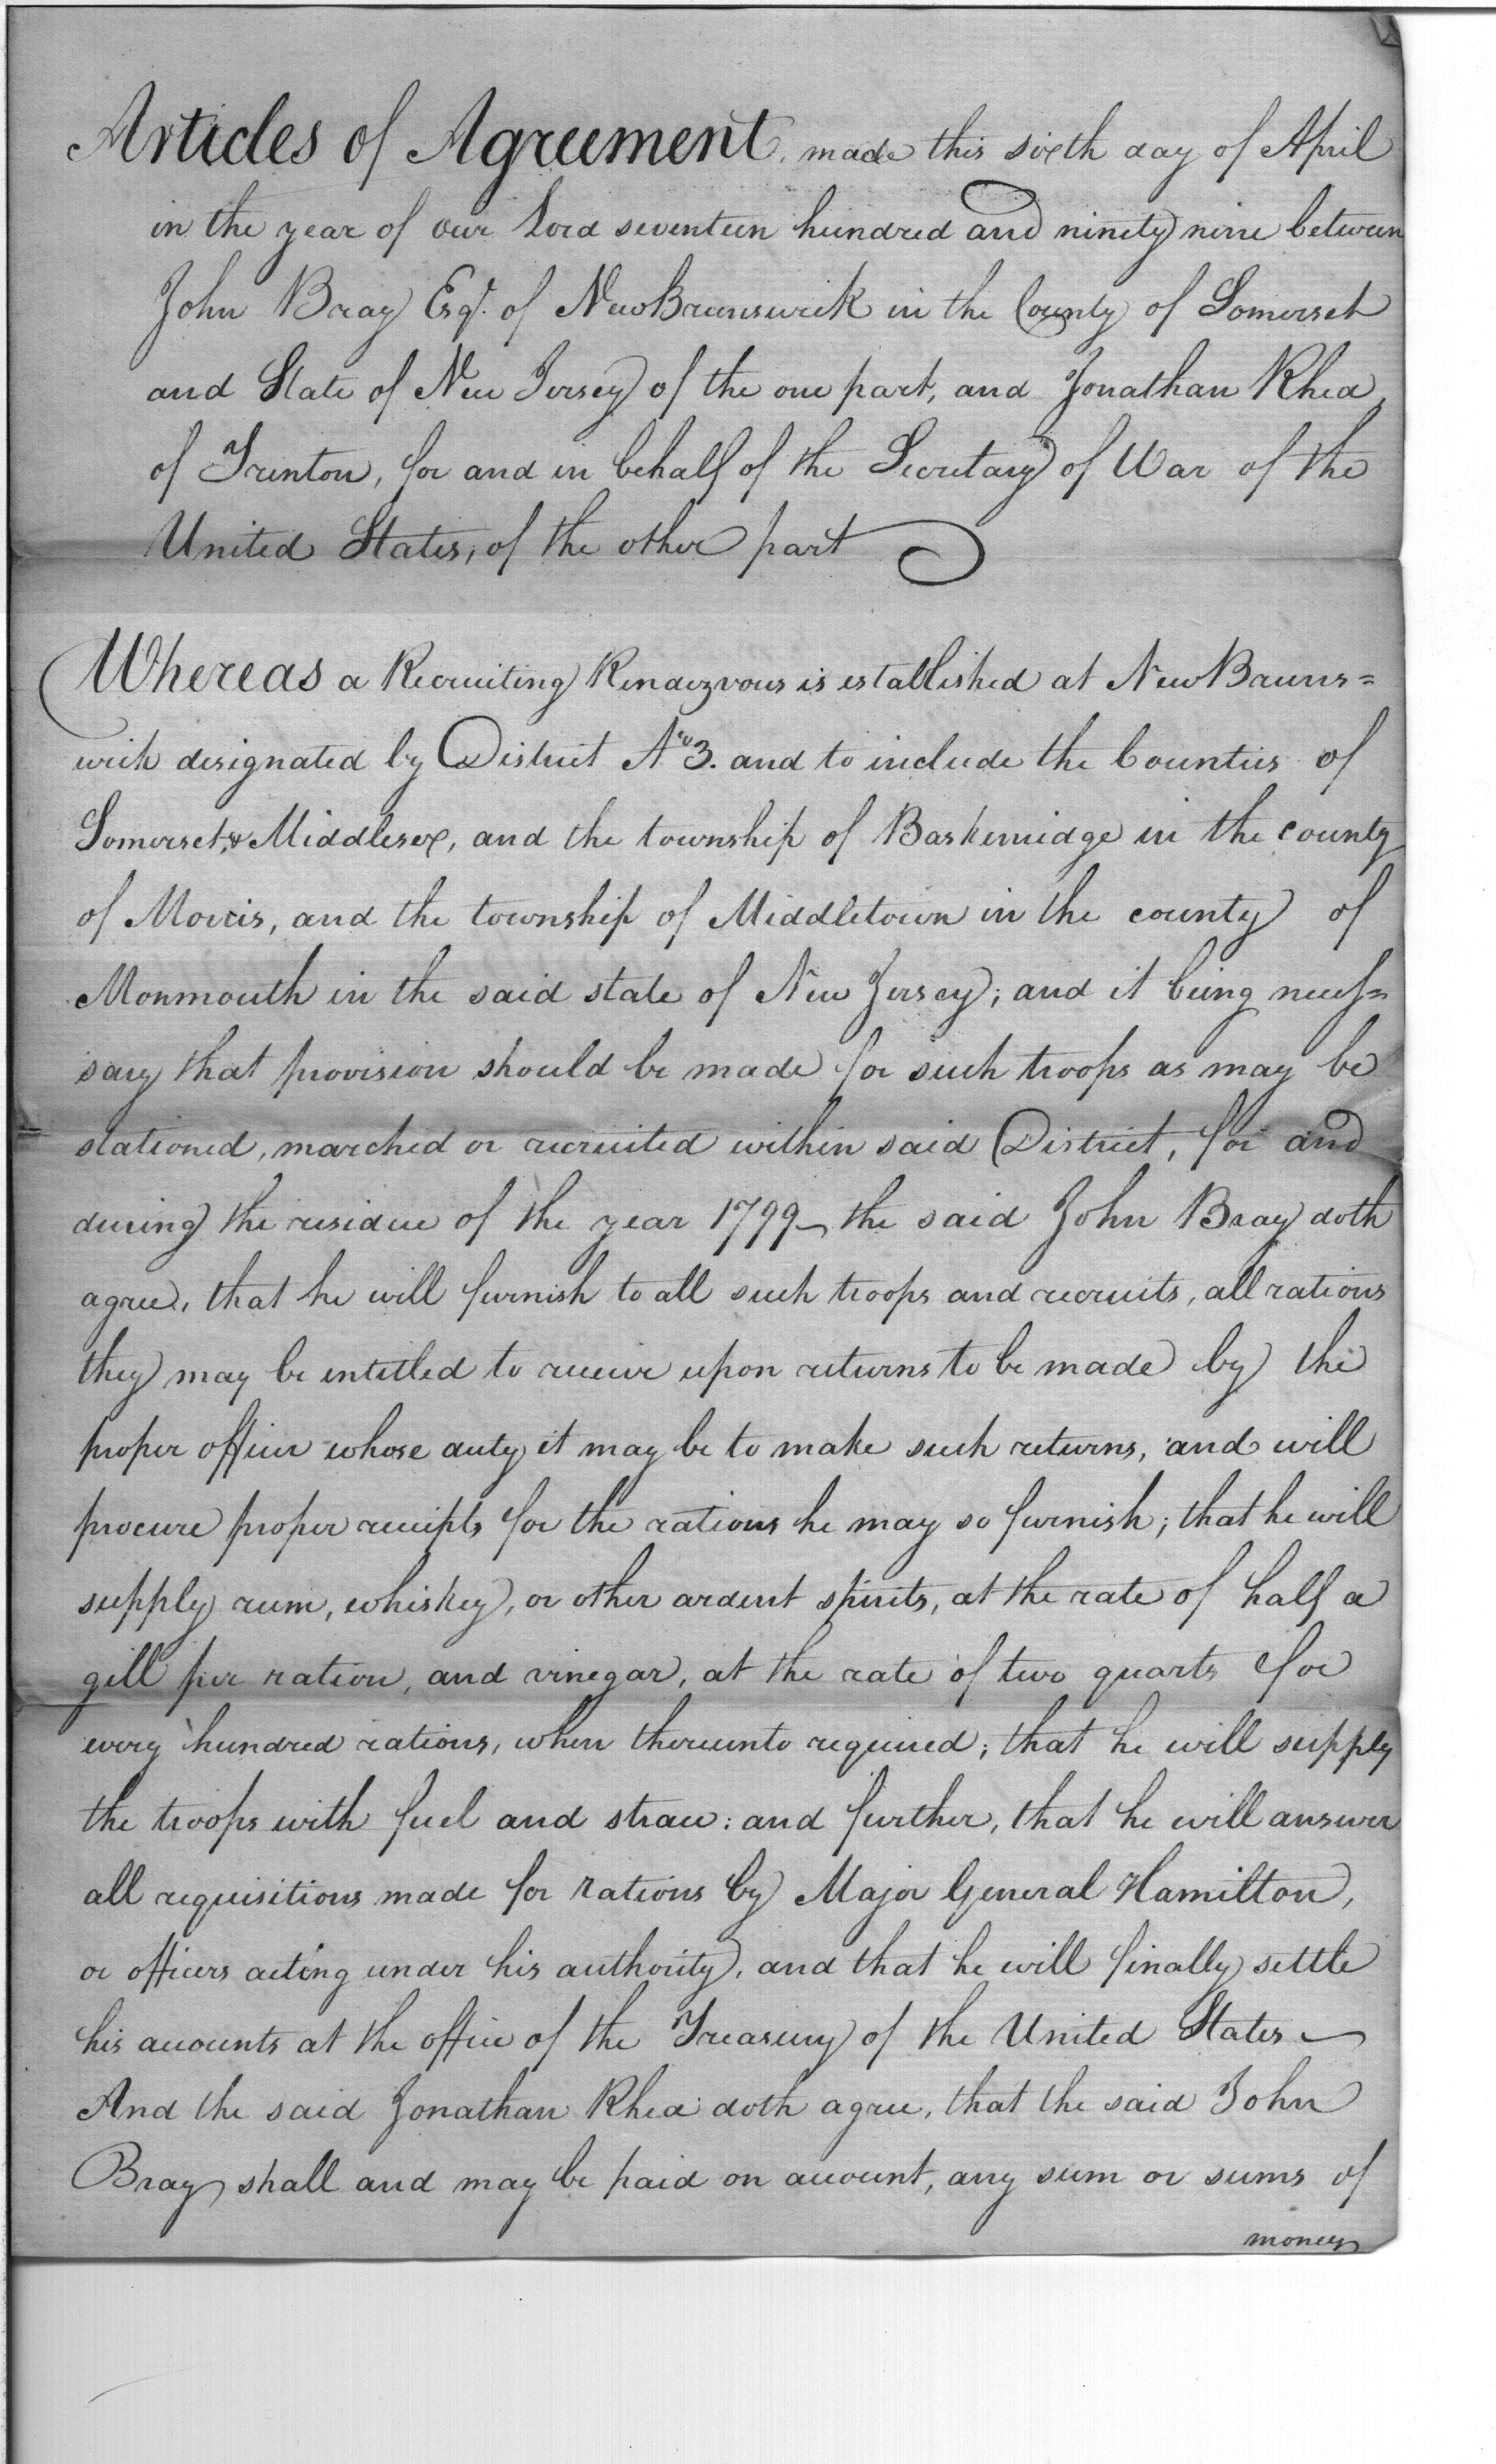 Articles of Agreement, made this sixth day of April
in the year of our Lord seventeen hundred and ninety nine between
John Bray Esqr. of New Brunswick in the County of Somerset
and State of New Jersey of the one part, and Jonathan Rhea
of Trenton, for and in behalf of the Secretary of War of the
United States, of the other part
Whereas a Recruiting Rendezvous is established at New Bruns=
wick designated by District No 3. and to include the Counties of
Somerset, & Middlesex, and the township of Baskenridge in the county
of Morris, and the township of Middletown in the county of
Monmouth in the said state of New Jersey; and it being neces=
sary that provision should be made for such troops as may be
stationed, marched or recruited within said District, for and
during the residue of the year 1799 – the said John Bray doth
agree, that he will furnish to all such troops and recruits, all rations
they may be entitled to receive upon returns to be made by the
proper officer whose duty it may be to make such returns, and will
procure proper receipts for the rations he may so furnish; that he will
supply rum, whiskey, or other ardent spirits, at the rate of half a
gill per ration, and vinegar, at the rate of two quarts for
every hundred rations, when thereunto required; that he will supply
the troops with fuel and straw: and further, that he will answer
all requisitions made for rations by Major General Hamilton,
or officers acting under his authority, and that he will finally settle
his accounts at the office of the Treasury of the United States –
And the said Jonathan Rhea doth agree, that the said John
Bray shall and may be paid on account, any sum or sums of
money